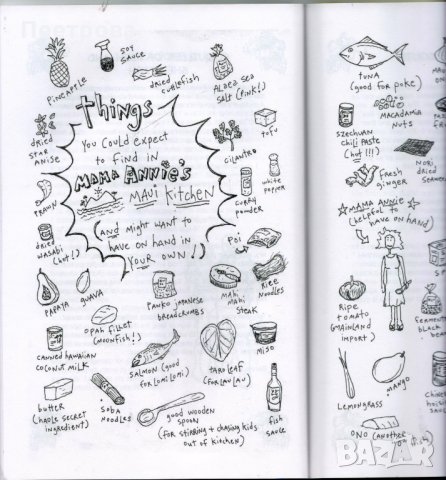 PINEAPPLE
SOY
SAUCE
dried
cuttlefish
ALAEA SEA
SALT (PINK!)
things
You COULD expect
to find in
MAMA ANNIE'S
MAUI KITCHEN
(AND Might WANT to
have on hand in
YOUR OWN!)
dried
STAR
ANISE
PRAWN
dried
wasabi
(hot!)
tofu
CILANTRO
white
pepper
CURRY
powder
POI
RICE
Noodles
PAPAYA
guava
PANKO JAPANESE
BREADCRUMBS
MAHI
MAHI
STEAK
OPAH FILLET
(MOONFISH!)
CANNED HAWAIIAN
COCONUT MILK
SALMON (good
for LOMI LOMI)
TARO LEAF
(for LAU LAU)
MISO
butter
(HAOLE SECRET
ingredient)
SOBA
NOODLES
good wooden
spoon
(for stirring + chasing kids
out of kitchen)
fish
sauce
TUNA
(good for poke)
MACADAMIA
NUTS
SZECHUAN
CHILI PASTE
(hot!!!)
NORI
DRIED
SEAWEED
fresh
ginger
MAMA ANNIE
(helpful to
have on hand)
RIPE
TOMATO
(MAINLAND
IMPORT)
LEMONGRASS
MANGO
ONO (another
BAZAR